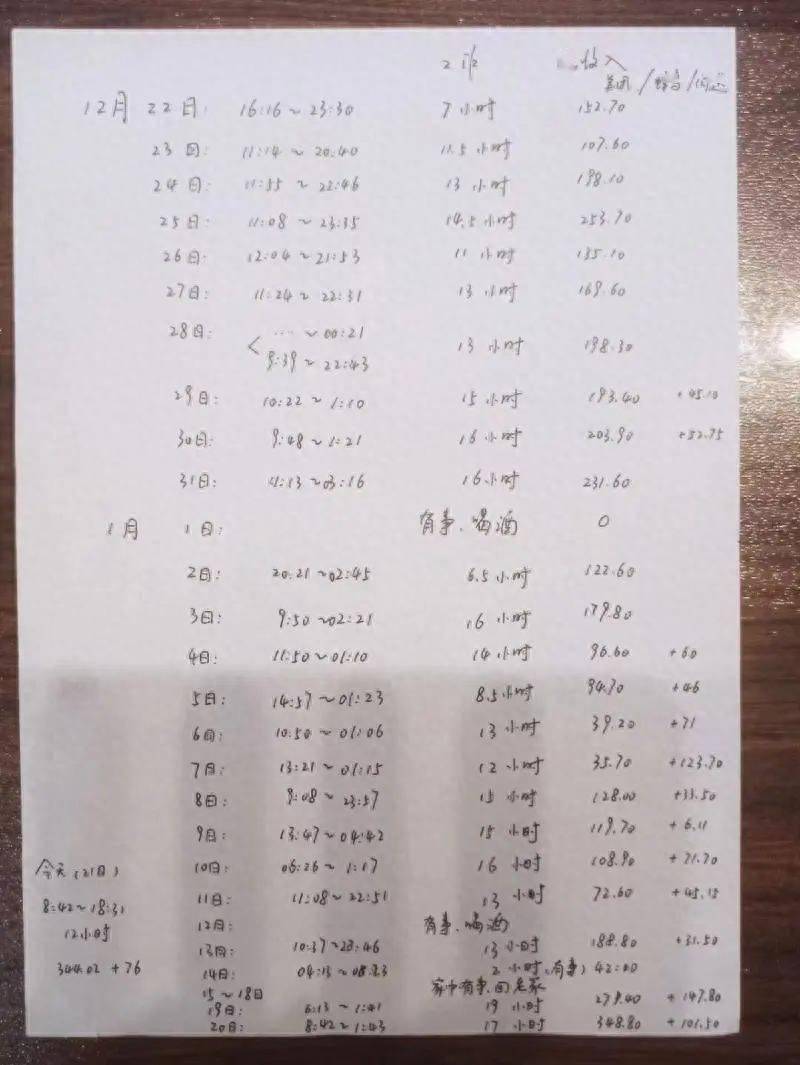 工作 收入
美团/蜂鸟/闪送
12月 22日: 16:16~23:30 7小时 152.70
23日: 11:14~20:40 11.5小时 107.60
24日: 11:55~22:46 13小时 198.10
25日: 11:08~23:35 14.5小时 253.70
26日: 12:04~21:53 11小时 135.10
27日: 11:24~22:31 13小时 169.60
28日: < ...~00:21
9:39~22:43 13小时 198.30
29日: 10:22~1:10 15小时 193.40 +45.10
30日: 9:48~1:21 16小时 203.90 +52.75
31日: 11:13~03:16 16小时 231.60
1月 1日: 有事、喝酒 0
2日: 20:21~02:45 6.5小时 122.60
3日: 9:50~02:21 16小时 179.80
4日: 11:50~01:10 14小时 96.60 +60
5日: 14:57~01:23 8.5小时 94.70 +46
6日: 10:50~01:06 13小时 39.20 +71
7日: 13:21~01:15 12小时 35.70 +123.70
8日: 9:08~23:57 15小时 128.00 +33.50
9日: 13:47~04:42 15小时 119.70 +6.11
10日: 06:26~1:17 16小时 108.90 +71.70
11日: 11:08~22:51 13小时 72.60 +45.15
12日: 有事、喝酒
13日: 10:37~23:46 13小时 188.80 +31.50
14日: 04:13~08:23 2小时(有事) 42.00
15~18日 家中有事、回老家
19日: 6:13~1:41 19小时 279.40 +147.80
20日: 8:42~1:43 17小时 348.80 +101.50
今天(21日)
8:42~18:31
12小时
344.02+76